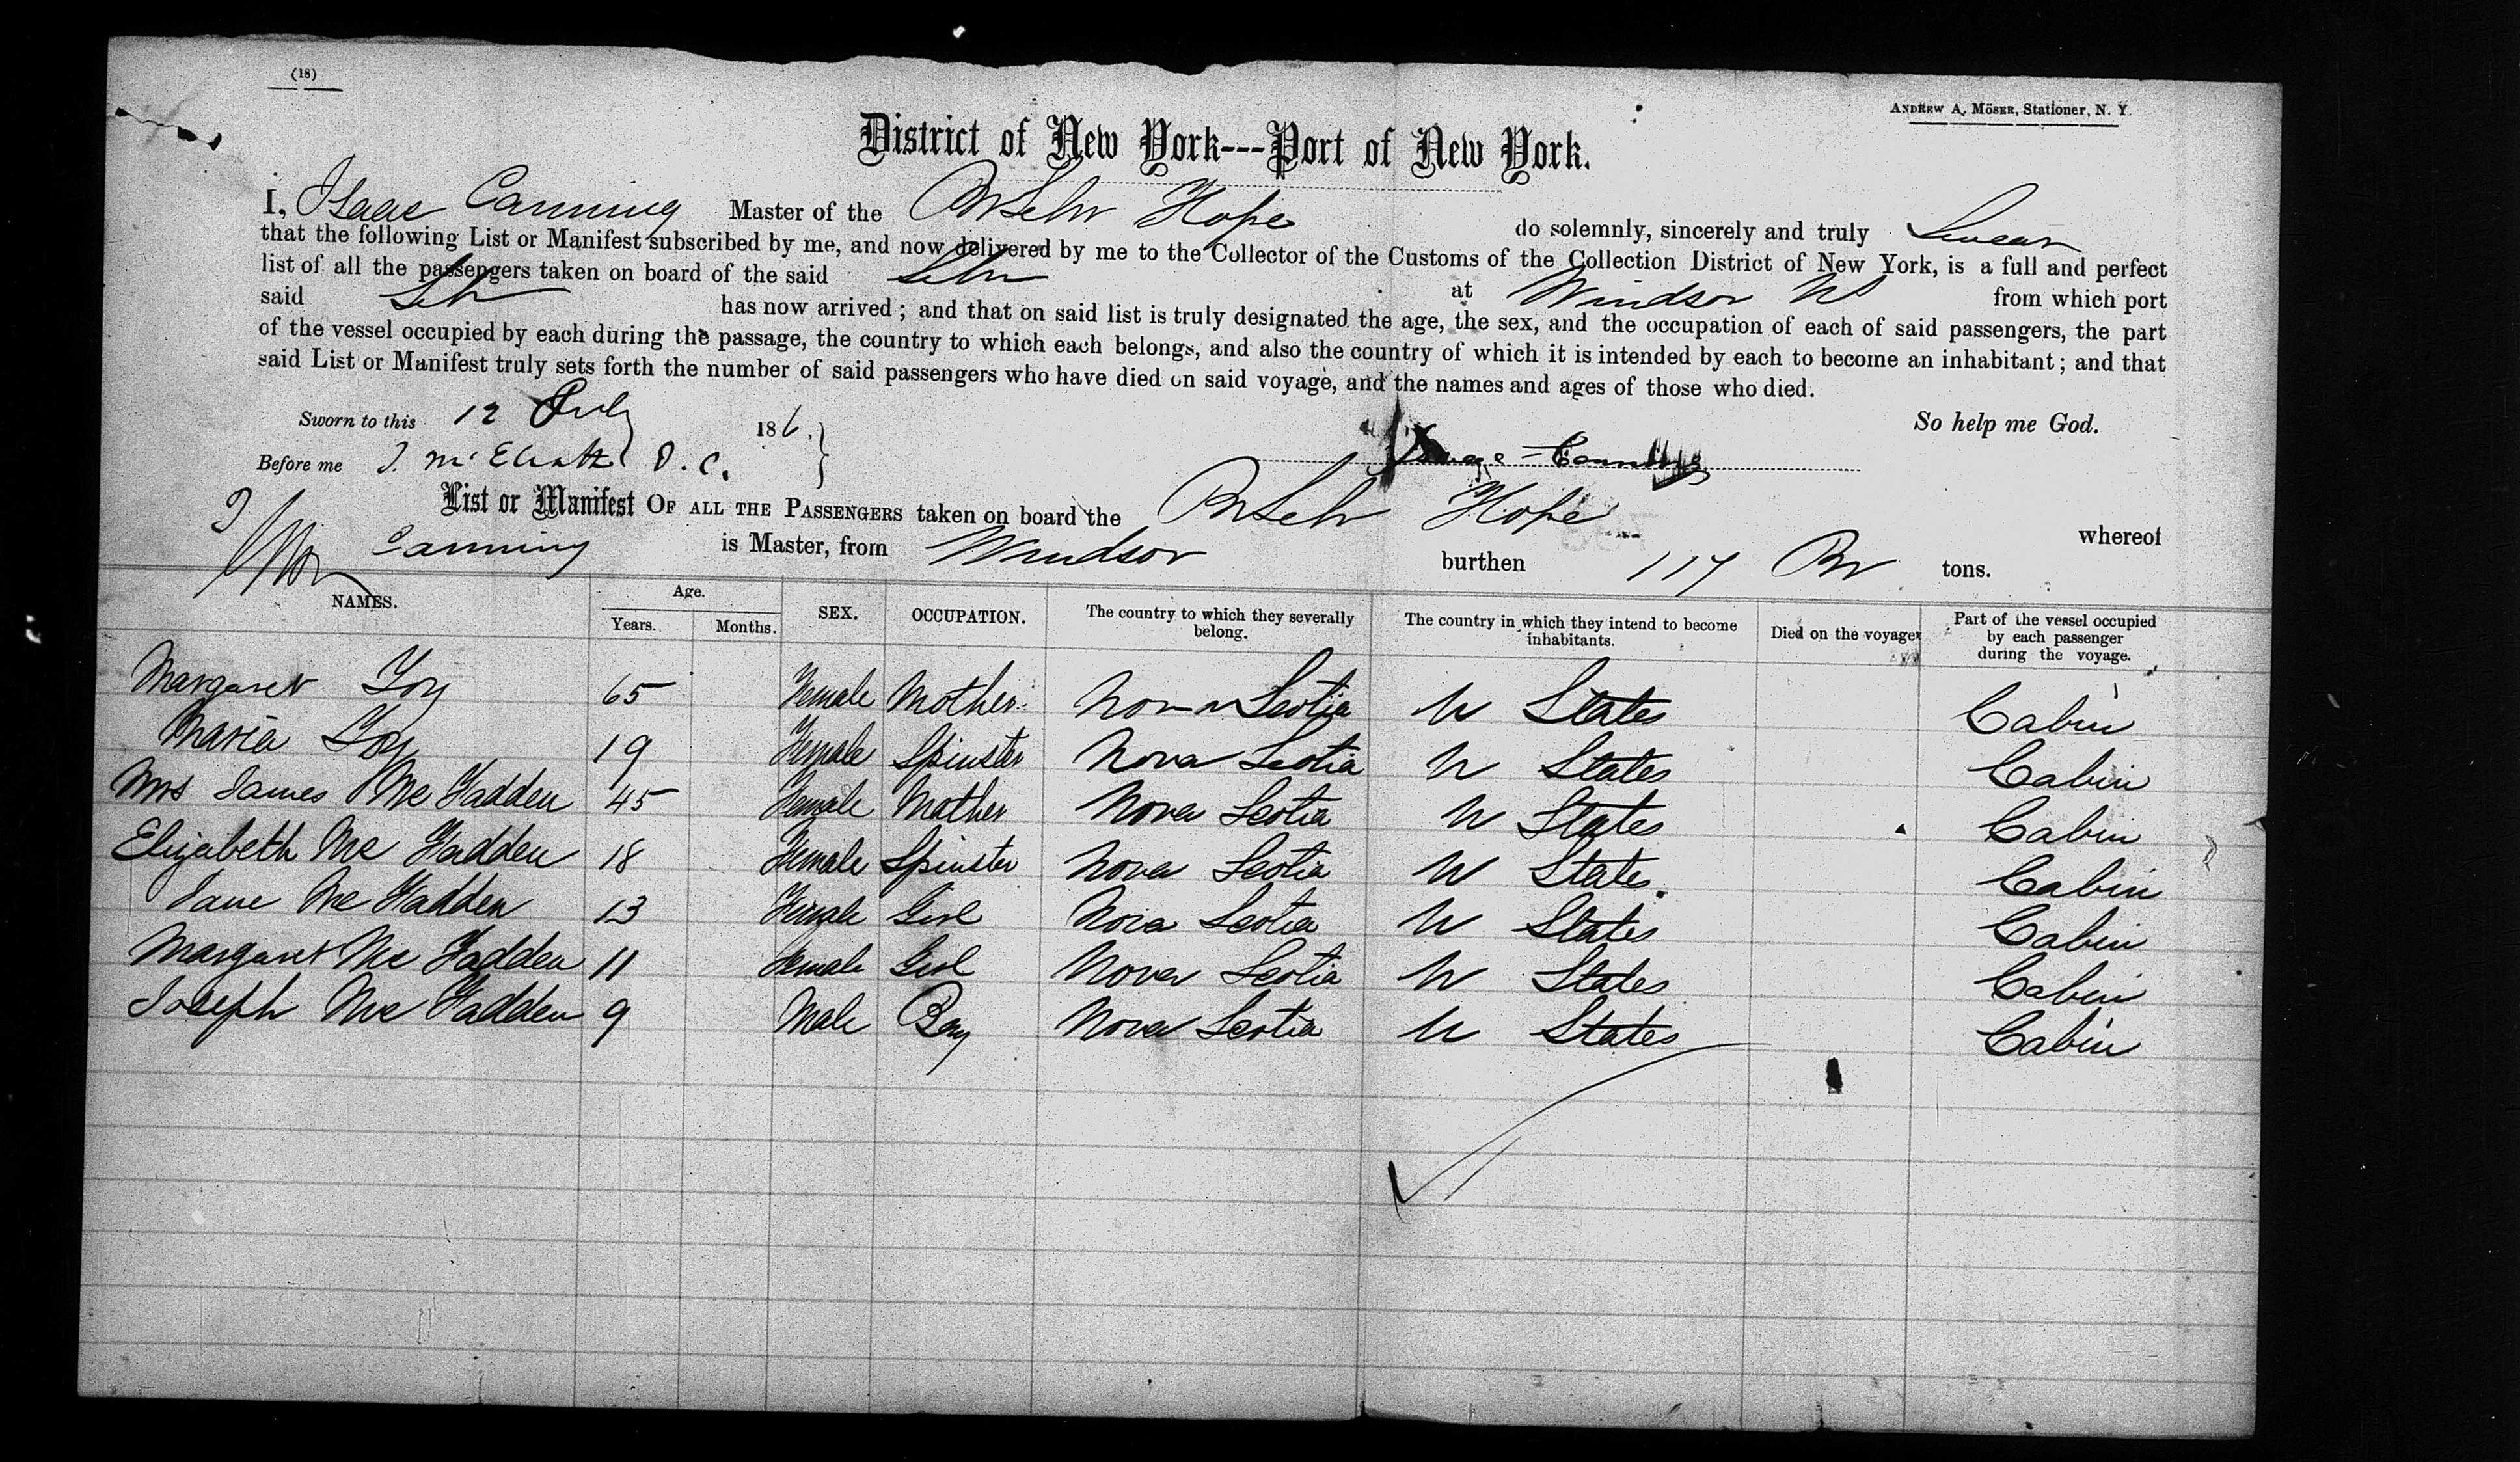 (18)
ANDREW A. MÖSER, Stationer, N. Y.
District of New York---Port of New York.
I, Isaac Canning Master of the Br Schr Hope do solemnly, sincerely and truly Swear
that the following List or Manifest subscribed by me, and now delivered by me to the Collector of the Customs of the Collection District of New York, is a full and perfect
list of all the passengers taken on board of the said Schr at Windsor NS from which port
said Schr has now arrived; and that on said list is truly designated the age, the sex, and the occupation of each of said passengers, the part
of the vessel occupied by each during the passage, the country to which each belongs, and also the country of which it is intended by each to become an inhabitant; and that
said List or Manifest truly sets forth the number of said passengers who have died on said voyage, and the names and ages of those who died.
Sworn to this 12 July 186 . So help me God.
Before me J. McElrath D. C. Isaac Canning
List or Manifest OF ALL THE PASSENGERS taken on board the Br Schr Hope whereof
Canning is Master, from Windsor burthen 117 Br tons.
NAMES. Age. Years. Months. SEX. OCCUPATION. The country to which they severally belong. The country in which they intend to become inhabitants. Died on the voyage Part of the vessel occupied by each passenger during the voyage.
Margaret 65 Female Mother Nova Scotia U States Cabin
Maria 19 Female Spinster Nova Scotia U States Cabin
Mrs James McFadden 45 Female Mother Nova Scotia U States Cabin
Elizabeth McFadden 18 Female Spinster Nova Scotia U States Cabin
Jane McFadden 13 Female Girl Nova Scotia U States Cabin
Margaret McFadden 11 Female Girl Nova Scotia U States Cabin
Joseph McFadden 9 Male Boy Nova Scotia U States Cabin